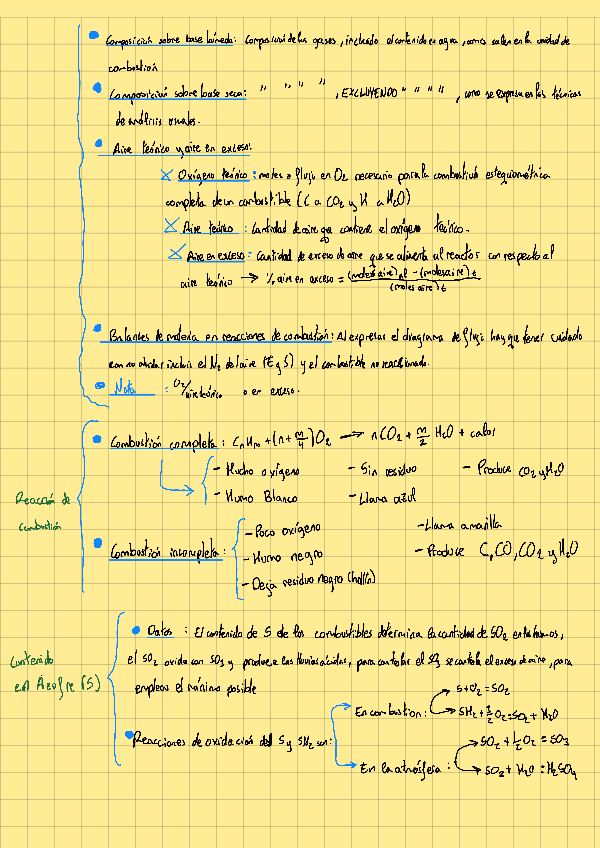 Composición sobre base húmeda: Composición de los gases, incluido el contenido en agua, como salen en la unidad de
combustión
Composición sobre base seca: " " " " , EXCLUYENDO " " " " , como se expresa en las técnicas
de análisis usuales.
Aire teórico y aire en exceso:
Oxígeno teórico: moles o flujo en O₂ necesario para la combustión estequiométrica
completa de un combustible (C a CO₂ y H a H₂O)
Aire teórico : Cantidad de aire que contiene el oxígeno teórico.
Aire en exceso: Cantidad de exceso de aire que se alimenta al reactor con respecto al
aire teórico → % aire en exceso = (moles aire) - (moles aire)t / (moles aire)t
Balantes de materia en reacciones de combustión: Al expresar el diagrama de flujo hay que tener cuidado
con no olvidar incluir el N₂ del aire (E y S) y el combustible no reaccionado.
Nota : O₂/aire teórico o en exceso.
Reacción de
combustión
Combustión completa: CnHm + (n + m/4) O₂ → nCO₂ + m/2 H₂O + calor
- Mucho oxígeno - Sin residuo - Produce CO₂ y H₂O
- Humo Blanco - Llama azul
Combustión incompleta:
- Poco oxígeno - Llama amarilla
- Humo negro - Produce C, CO, CO₂ y H₂O
- Deja residuo negro (hollín)
Contenido
en Azufre (S)
Datos : El contenido de S de los combustibles determina la cantidad de SO₂ en los humos,
el SO₂ oxida con SO₃ y produce las lluvias ácidas, para controlar el SO₃ se controla el exceso de aire, para
emplear el mínimo posible
Reacciones de oxidación del S y SH₂ son:
En combustion:
S + O₂ = SO₂
SH₂ + 3/2 O₂ = SO₂ + H₂O
En la atmósfera :
SO₂ + 1/2 O₂ = SO₃
SO₂ + H₂O = H₂SO₄